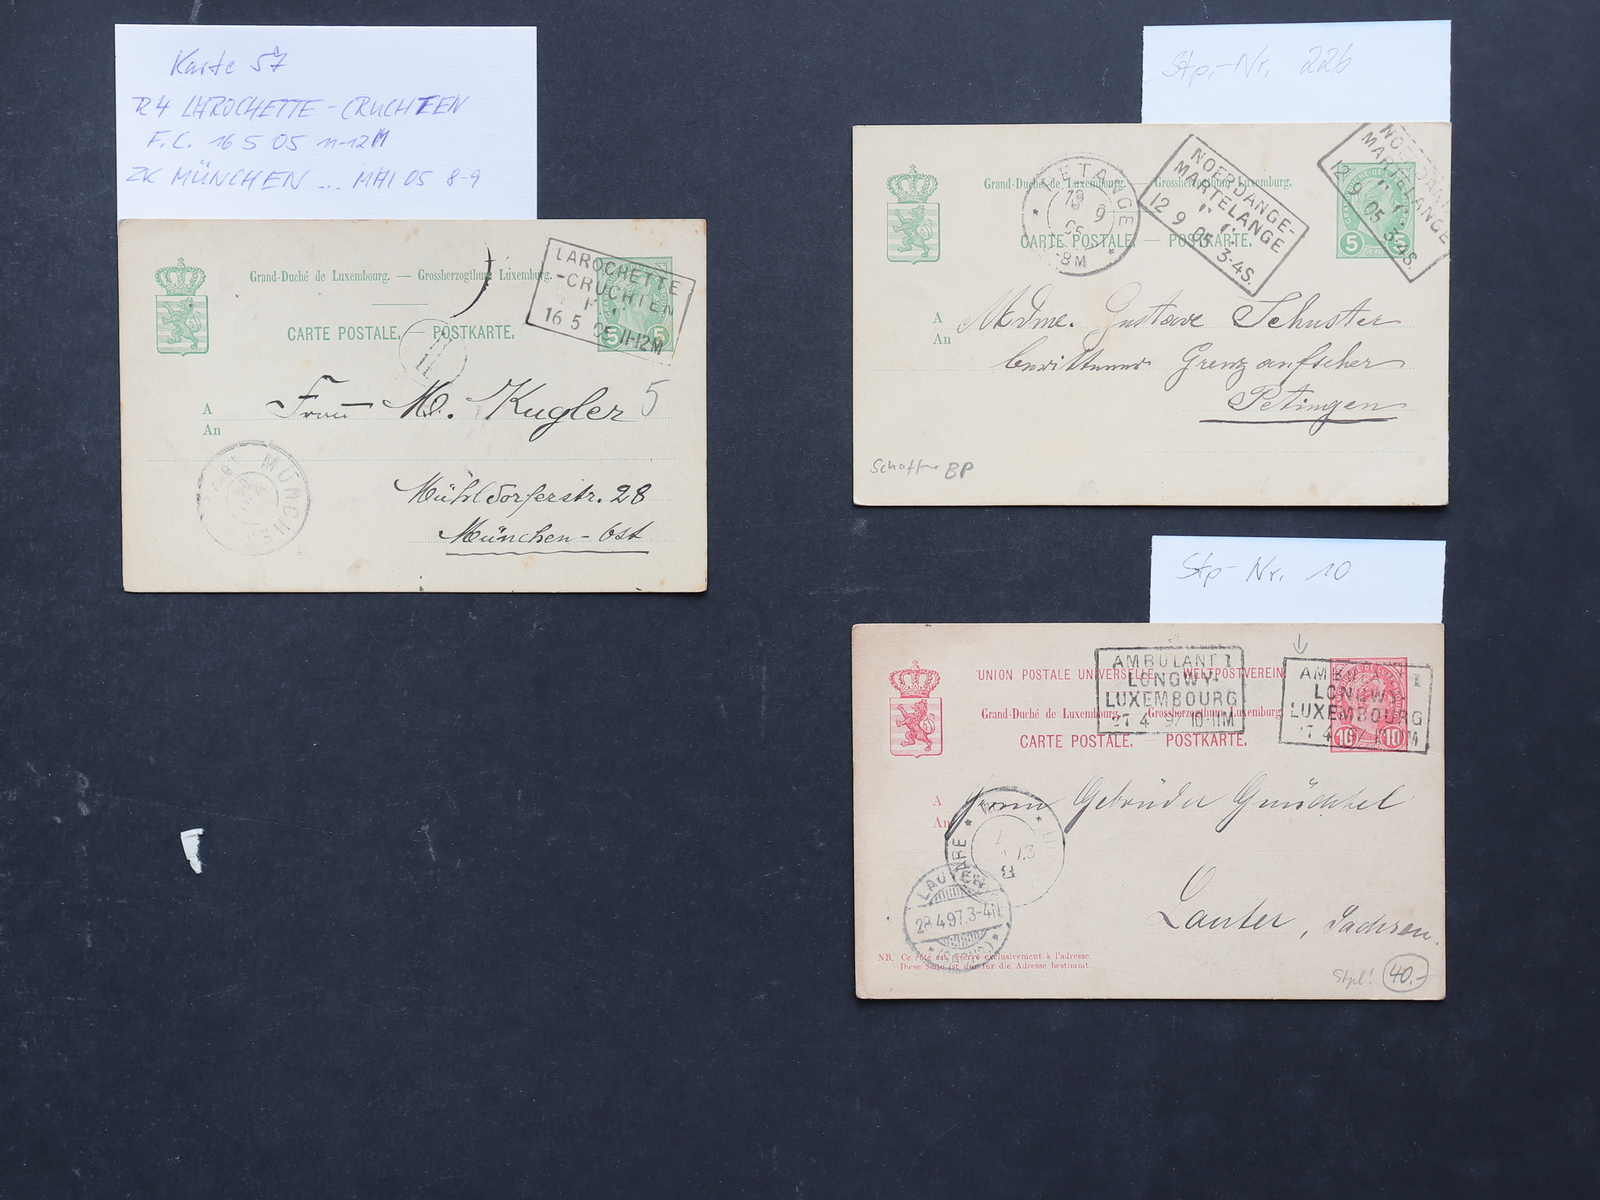 Karte 57
R4 LAROCHETTE - CRUCHTEN
F.L. 16 5 05 11-12M
ZK MÜNCHEN ... MAI 05 8-9
Grand-Duché de Luxembourg. — Grossherzogthum Luxemburg.
CARTE POSTALE. — POSTKARTE.
LAROCHETTE
-CRUCHTEN
16 5 05 11-12M
5 5
11
A
An
Frau M. Kugler 5
MÜNCHEN
Mühldorferstr. 28
München - Ost
Stp.-Nr. 22b
Grand-Duché de Luxembourg. — Grossherzogthum Luxemburg.
CARTE POSTALE. — POSTKARTE.
PETANGE
13 9
05
8M
NOERDANGE-
MARTELANGE
12 9 05 3-4S.
NOERDANGE-
MARTELANGE
12 9 05 3-4S.
5
A
An
Mdme. Gustave Schuster
Grenzaufseher
Petingen
Schaffn. BP
Stp-Nr. 10
UNION POSTALE UNIVERSELLE. — WELTPOSTVEREIN.
Grand-Duché de Luxembourg. — Grossherzogthum Luxemburg.
CARTE POSTALE. — POSTKARTE.
AMBULANT 1
LONGWY-
LUXEMBOURG
27 4 97 10-11M
AMBULANT 1
LONGWY-
LUXEMBOURG
27 4 97 10-11M
10 10
A
An
Herrn Gebrüder Gnüchtel
LAUTER
28.4.97. 3-4N.
Lauter, Sachsen.
NB. Ce côté est réservé exclusivement à l'adresse.
Diese Seite ist nur für die Adresse bestimmt.
Stpl! 40.-